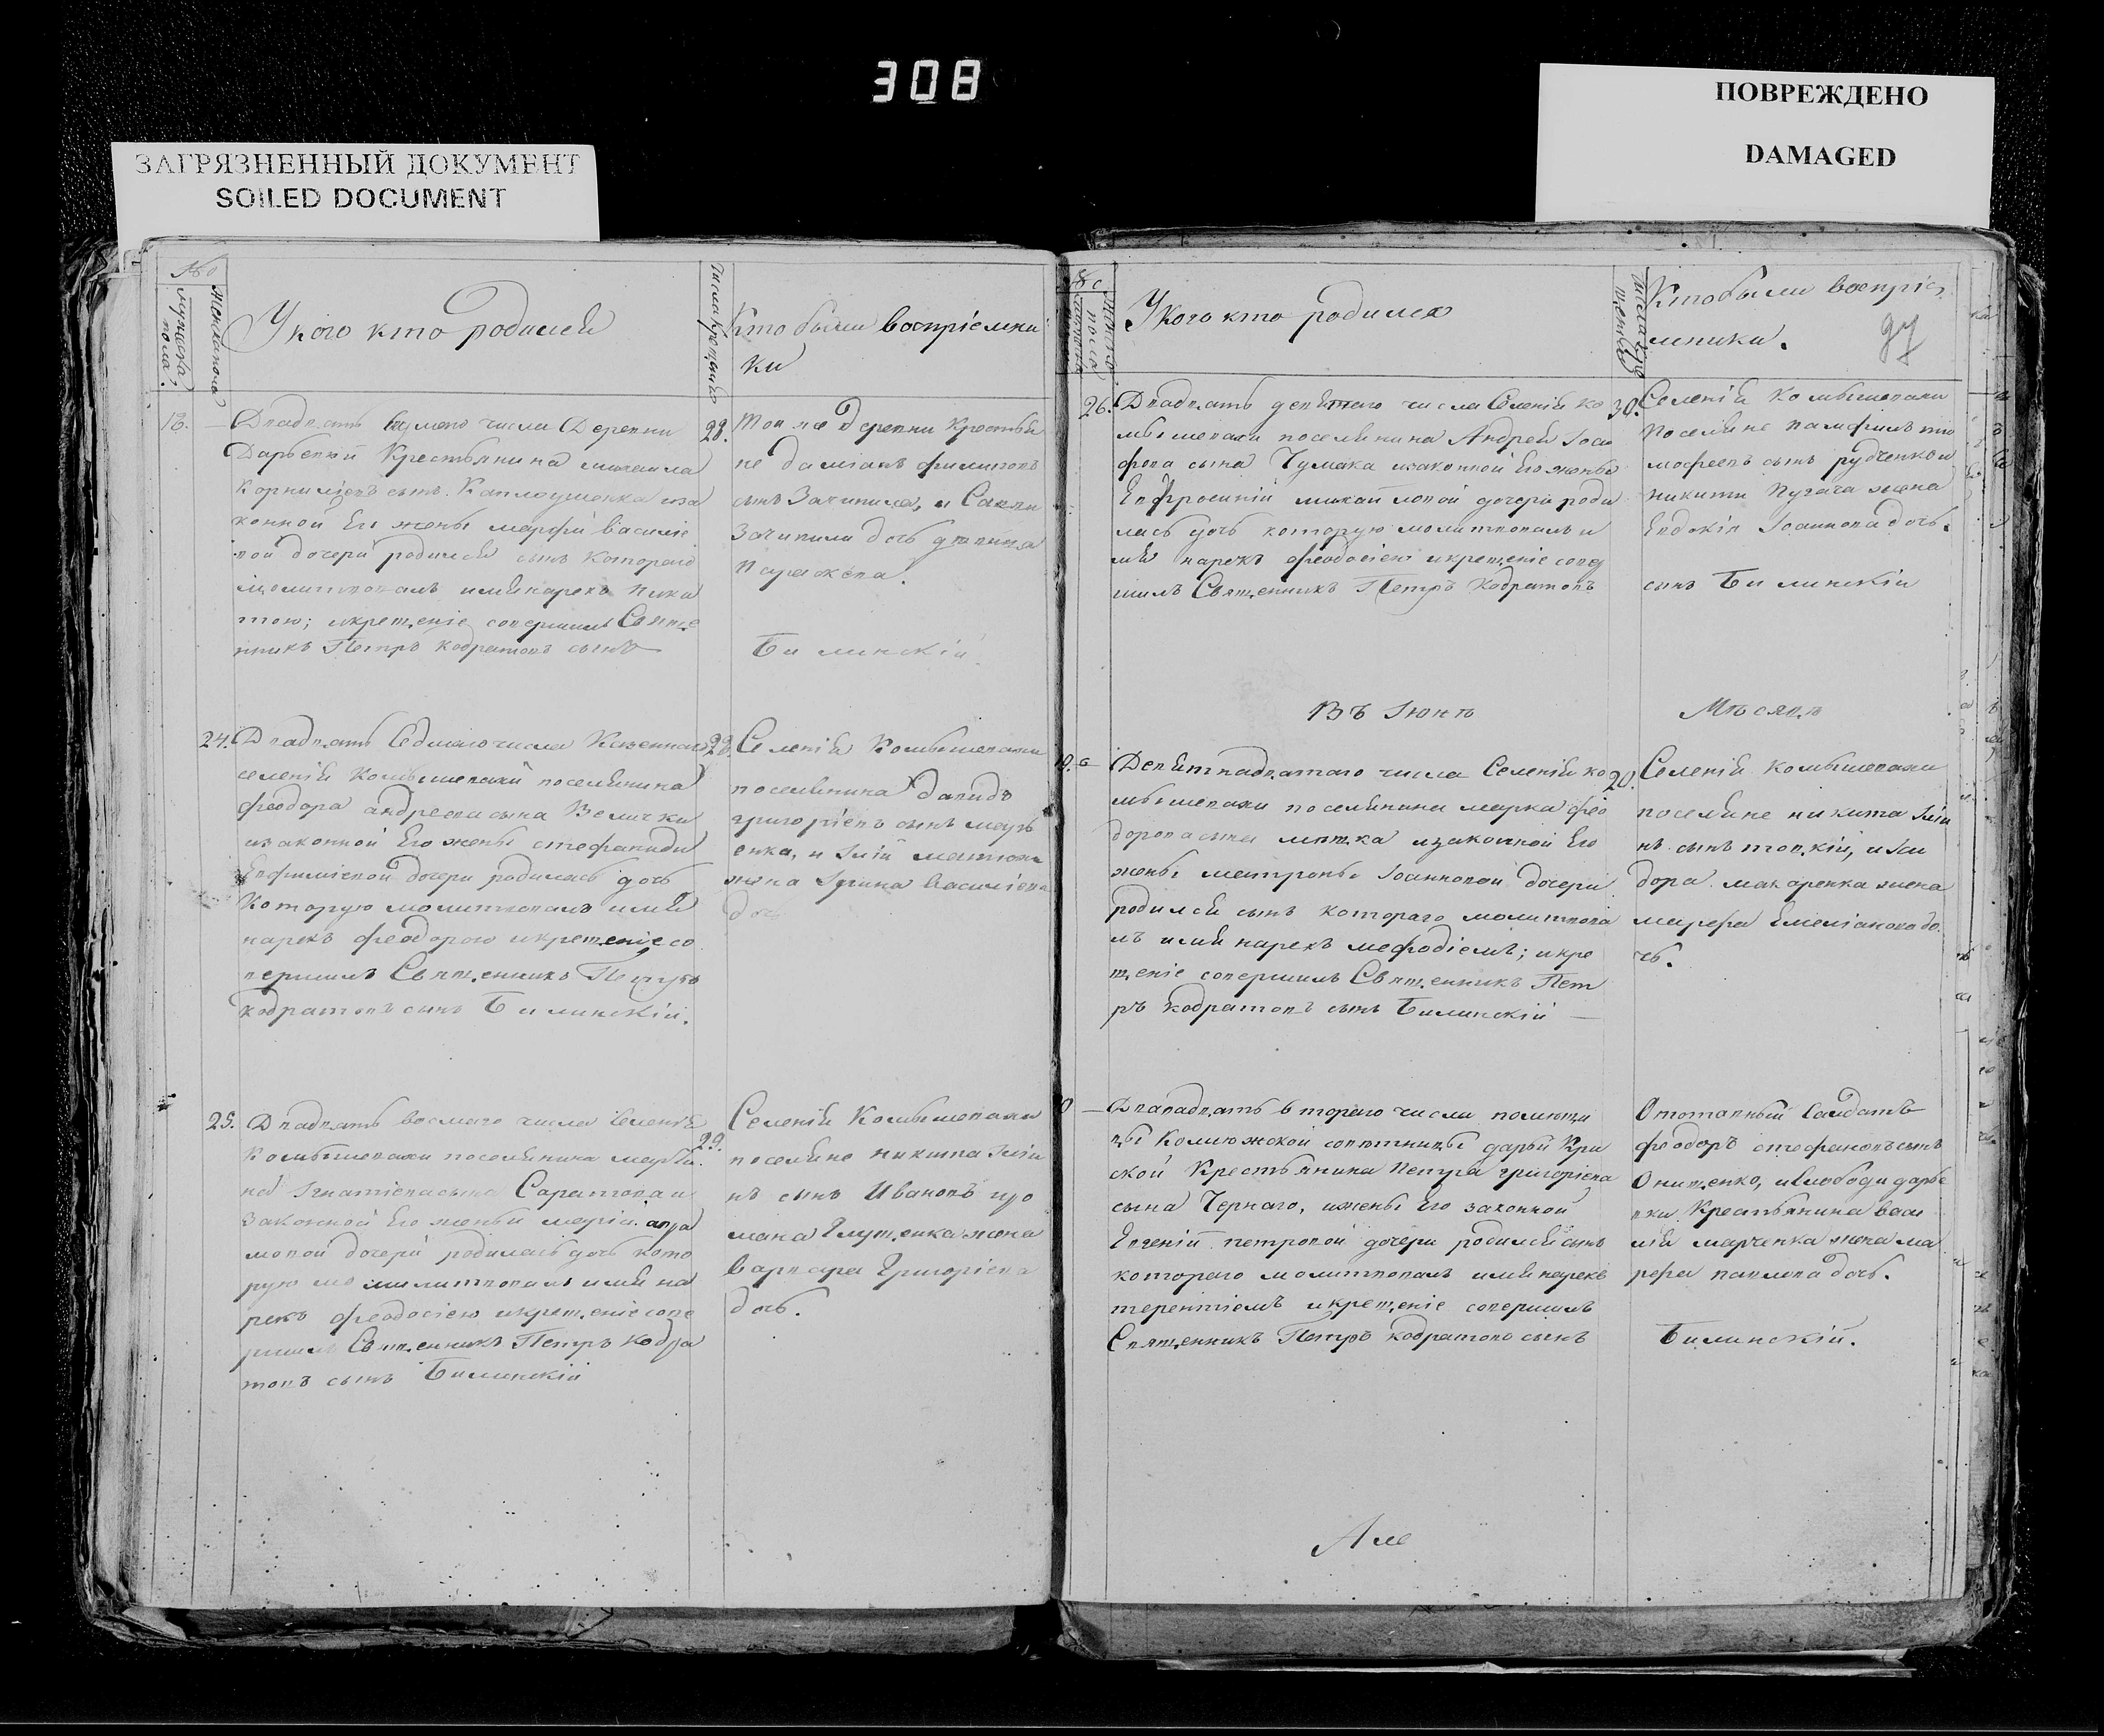 308
ПОВРЕЖДЕНО
DAMAGED
ЗАГРЯЗНЕННЫЙ ДОКУМЕНТ
SOILED DOCUMENT
№
мужеска пола.
женска пола
У кого кто родился
Числа крещенія
Кто были воспріемни
ки
13.
Двадцать числа Деревни
Дарьевки Крестьянина михаила
Корниліевъ сынъ иза
конной Его жены марфи василіе
вой дочери родился сынъ котораго
молитвовалъ имя нарекъ ники
тою; икрещеніе совершилъ Свяще
нникъ Петръ кодратовъ сынъ
28.
Той же Деревни Крестья
не даміанъ филиповъ
сынъ и Саввы
дочь девица
Параскева.
Билинскій
24.
Двадцать Седмаго числа Казеннаго
селенія Комышевахи поселянина
феодора андреева сына Велички
изаконной Его жены стефаниды
Евфиміевой дочери родилась дочь
Которую молитвовалъ имя
нарекъ феодорою икрещеніе со
вершилъ Священникъ Петръ
кодратовъ сынъ Билинскій.
28.
Селенія Комышевахи
поселянина давидъ
григоріевъ сынъ
енка, и Іліи
жена Ірина Василіева
дочь
25.
Двадцать восмаго числа Селенія
Комышевахи поселянина марты
на Игнатіева сына Саратова и
законной Его жены маріи
мовой дочери родилась дочь кото
рую молитвовалъ имя на
рекъ феодосіею икрещеніе сове
ршилъ Священникъ Петръ кодра
товъ сынъ Билинскій
29.
Селенія Комышевахи
поселяне никита Іліи
нъ сынъ Ивановъ иро
мана Глущенка жена
варвара Григоріева
дочь.
№
У кого кто родился
Числа кре
щенія
Кто были воспріе
мники.
26.
Двадцать девятаго числа Селенія ко
мышевахи поселянина Андрея Іоси
фова сына Чумака изаконной Его жены
Евфросиніи михайловой дочери роди
лась дочь которую молитвовалъ и
мя нарекъ феодосіею икрещеніе сове
шилъ Священникъ Петръ Кодратовъ
30.
Селенія Комышевахи
Поселяне памфилъ ти
мофеевъ сынъ рудченко и
никиты Пугача жена
Евдокія Іоаннова дочь.
сынъ Билинскій
Въ Іюнѣ
Мѣсяцѣ
Девятнадцатаго числа Селенія ко
мышевахи поселянина марка фео
дорова сына изаконной Его
жены матроны Іоанновой дочери
родился сынъ котораго молитвова
лъ имя нарекъ мефодіемъ; икре
щеніе совершилъ Священникъ Пет
ръ кодратовъ сынъ Билинскій
20.
Селенія Комышевахи
поселяне никита Іліи
нъ сынъ и Иси
дора макаренка жена
марфа Емеліанова до
чь.
Двападцать втораго числа помещи
цы Коллюжской совѣтницы дарьи Кри
ской Крестьянина Петра григоріева
сына Чернаго, ижены Его законной
Евгеніи петровой дочери родился сынъ
котораго молитвовалъ имя нарекъ
терентіемъ икрещеніе совершилъ
Священникъ Петръ кодратовъ сынъ
Отставный Салдатъ
феодоръ стефановъ сынъ
Онищенко, ислободы дарье
вки Крестьянина васи
лія марченка жена ма
рфа павлова дочь.
Билинскій.